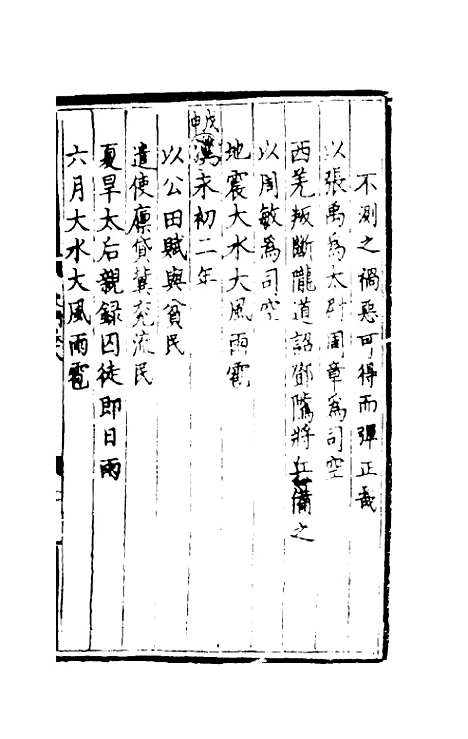 不測之禍惡可得而彈正哉
以張禹為太尉周章為司空
西羌叛斷隴道詔鄧隲將兵備之
以周敏為司空
地震大水大風雨雹
戊申漢永初二年
以公田賦與貧民
遣使廪貸冀兖流民
夏旱太后親録囚徒即日雨
六月大水大風雨雹